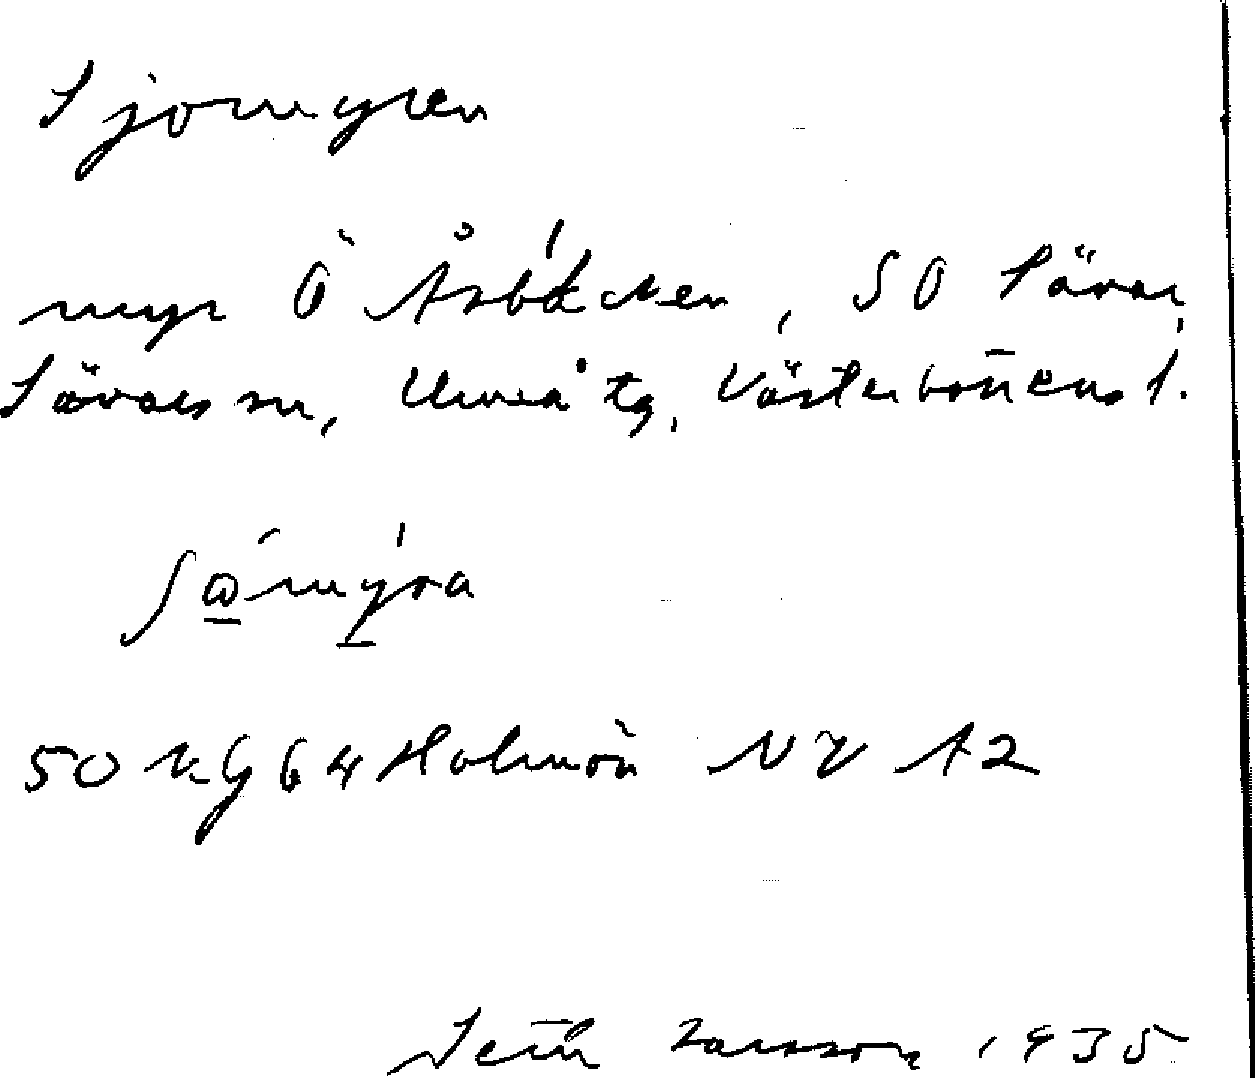 Sjömyren
myr Ö Åsbäcken, SO Sävar,
Sävars sn, Umeå tg, Västerbottens l.
50 kg 64 Holmön NV A2
Seth Larsson 1935